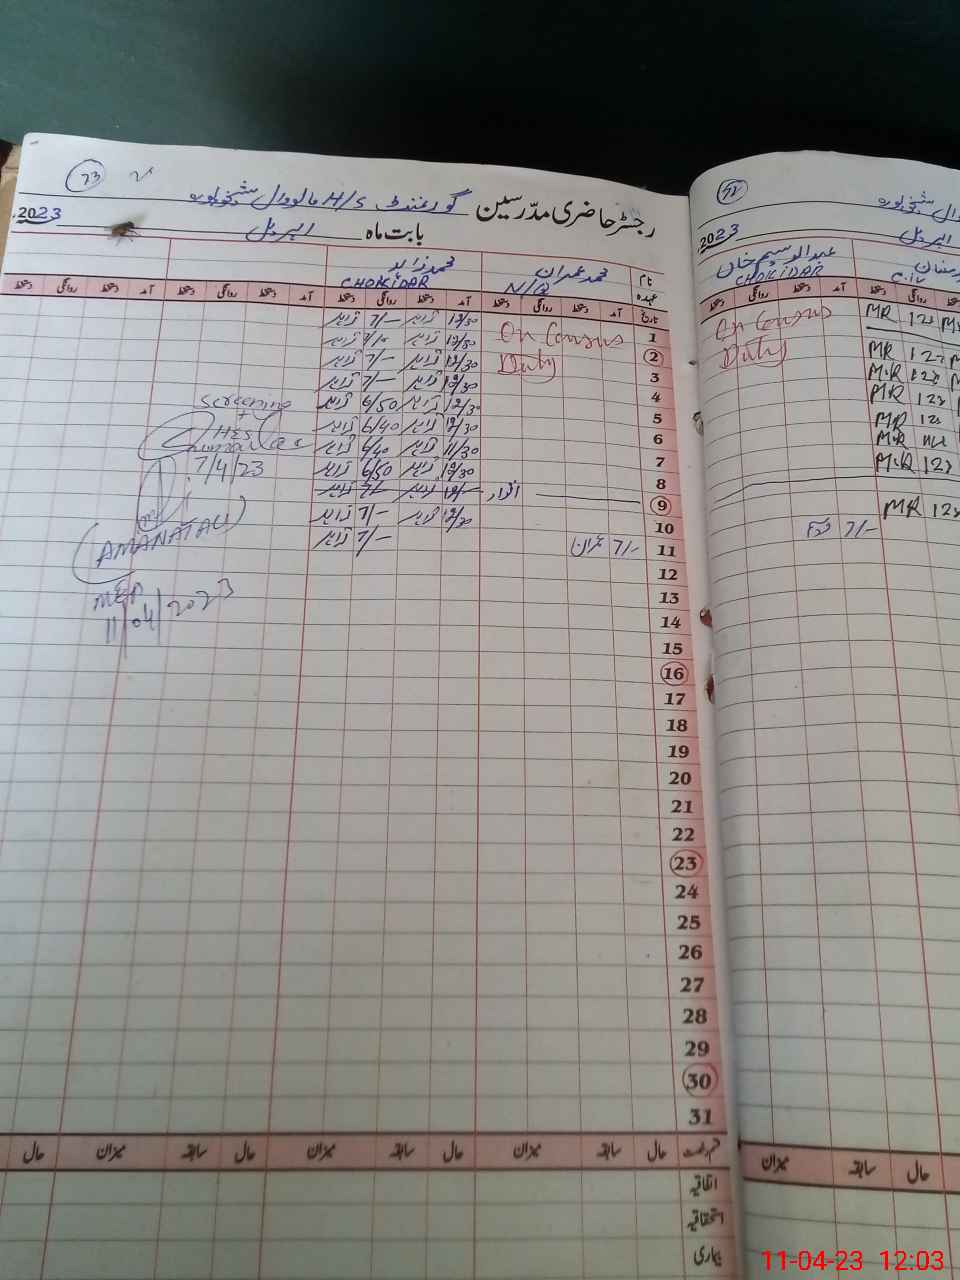 73
گورنمنٹ H/S مالووال شیخوپورہ رجسٹر حاضری مدرسین
2023 اپریل بابت ماہ
نام محمد عمران محمد زاہد
عہدہ N/Q CHOKIDAR
تاریخ آمد دستخط روانگی دستخط آمد دستخط روانگی دستخط آمد دستخط روانگی دستخط آمد دستخط روانگی دستخط
1 On Census 12/30 زاہد 7/- زاہد
2 Duty 12/30 زاہد زاہد
3 12/30 زاہد 7/- زاہد
4 12/30 زاہد 7/- زاہد
5 12/30 زاہد 6/50 زاہد
6 12/30 زاہد 6/40 زاہد
7 11/30 زاہد 6/40 زاہد
8 12/30 زاہد 6/50 زاہد
9 اتوار
10 12/30 زاہد 7/- زاہد
11 7/- عمران 7/- زاہد
12
13
14
15
16
17
18
19
20
21
22
23
24
25
26
27
28
29
30
31
Screening
+
HES
7/4/23
(AMANAT ALI)
MEA
11/04/2023
قسم رخصت حال سابقہ میزان حال سابقہ میزان حال سابقہ میزان حال
اتفاقیہ
استحقاقیہ
بیماری
72
شیخوپورہ
2023 اپریل
عبدالوسیم خان
CHOKIDAR C.IV
آمد دستخط روانگی دستخط
On Census
Duty
MR 12
MR 12
MR 12
MR 12
MR 12
MR
MR 12
MR 12
7/-
حال سابقہ میزان
11-04-23 12:03